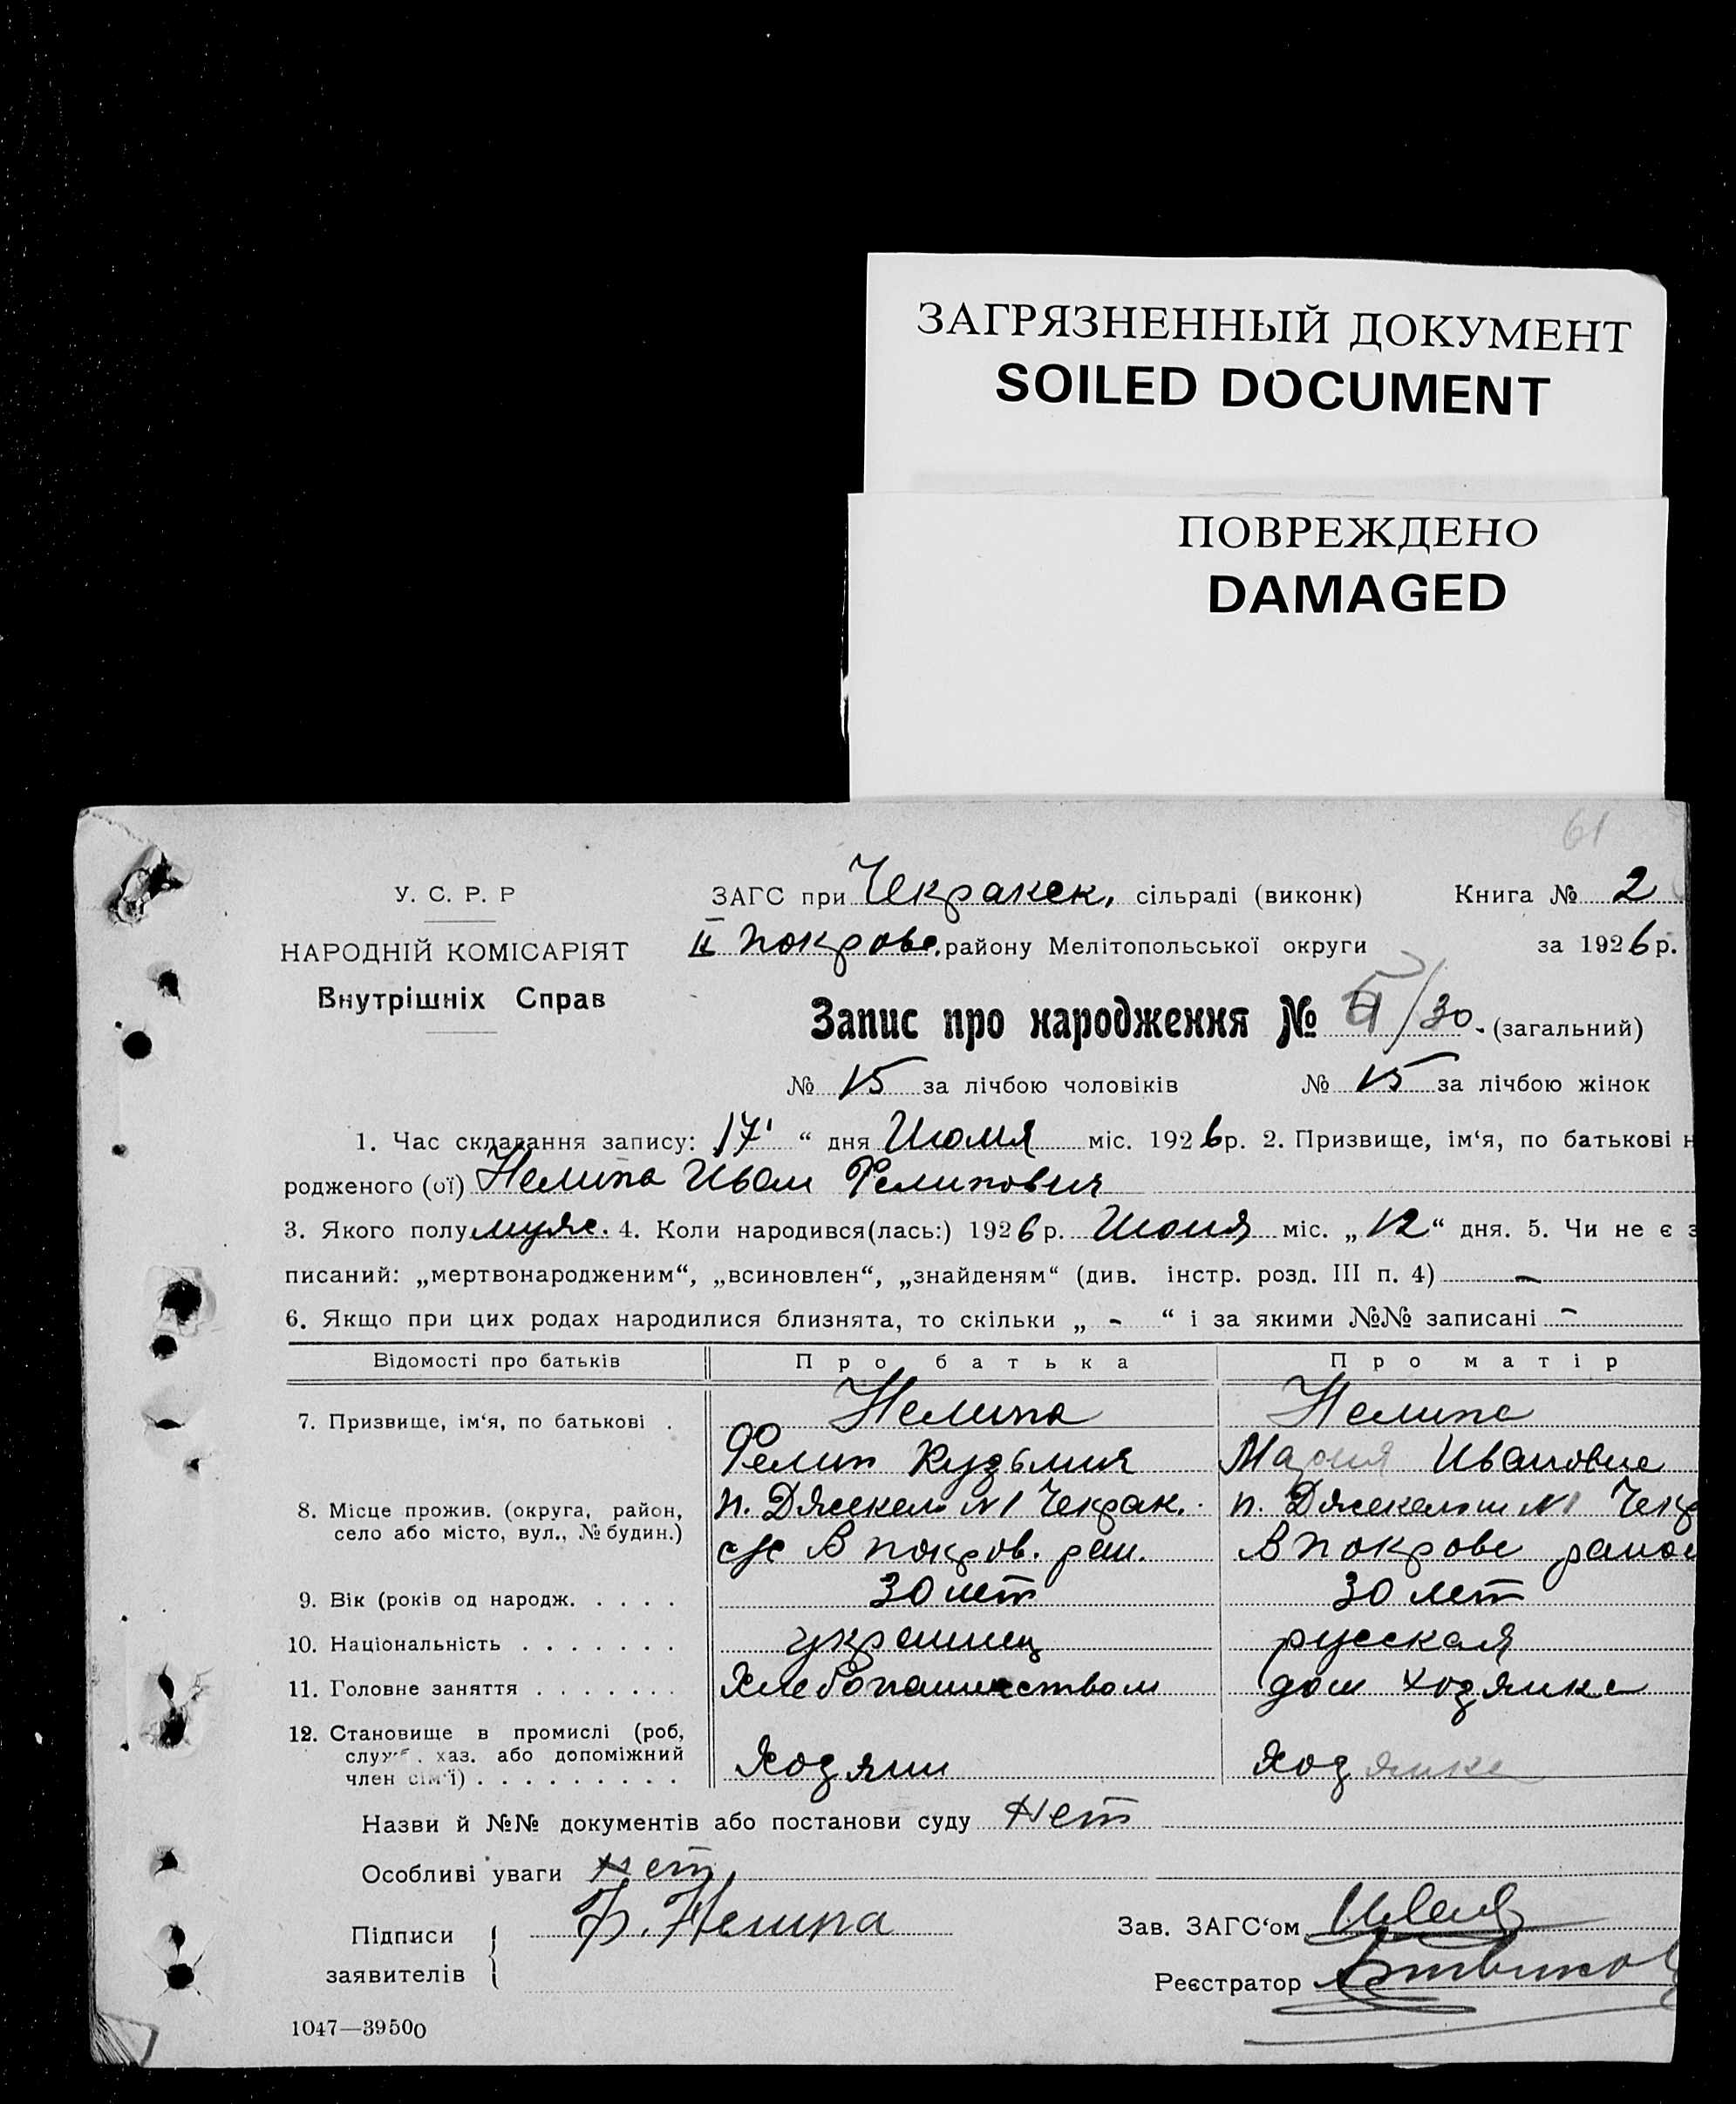 ЗАГРЯЗНЕННЫЙ ДОКУМЕНТ
SOILED DOCUMENT
ПОВРЕЖДЕНО
DAMAGED
61
У. С. Р. Р
НАРОДНІЙ КОМІСАРІЯТ
Внутрішніх Справ
ЗАГС при Чекракск. сільраді (виконк) Книга № 2
II Покровс. району Мелітопольської округи за 1926 р.
Запис про народження № /30 - (загальний)
№ 15 за лічбою чоловіків № 15 за лічбою жінок
1. Час складання запису: 17 “ дня Июля міс. 1926 р. 2. Призвище, ім‘я, по батькові н
родженого (ої) Нелипа Иван Филипович
3. Якого полу муж. 4. Коли народився(лась:) 1926 р. Июня міс. „12“ дня. 5. Чи не є з
писаний: „мертвонародженим“, „всиновлен“, „знайденям“ (див. інстр. розд. III п. 4) -
6. Якщо при цих родах народилися близнята, то скільки „ - “ і за якими №№ записані -
Відомості про батьків Про батька Про матір
7. Призвище, ім‘я, по батькові . Нелипа Нелипа
Филип Кузьмич Мария Ивановна
8. Місце прожив. (округа, район, п. №1 Чекрак. п. №1 Чекр
село або місто, вул., № будин.) с/с В покров. рай. В Покровс район
9. Вік (років од народж. . . . . 30 лет 30 лет
10. Національність . . . . . . . украинец русская
11. Головне заняття . . . . . . . Хлебопашеством дом хозяйка
12. Становище в промислі (роб,
служб. хаз. або допоміжний
член сім‘ї) . . . . . . . . . Хозяин Хозяйка
Назви й №№ документів або постанови суду Нет
Особливі уваги Нет
Підписи Ф. Нелипа Зав. ЗАГС‘ом
заявителів Реєстратор
1047—39500